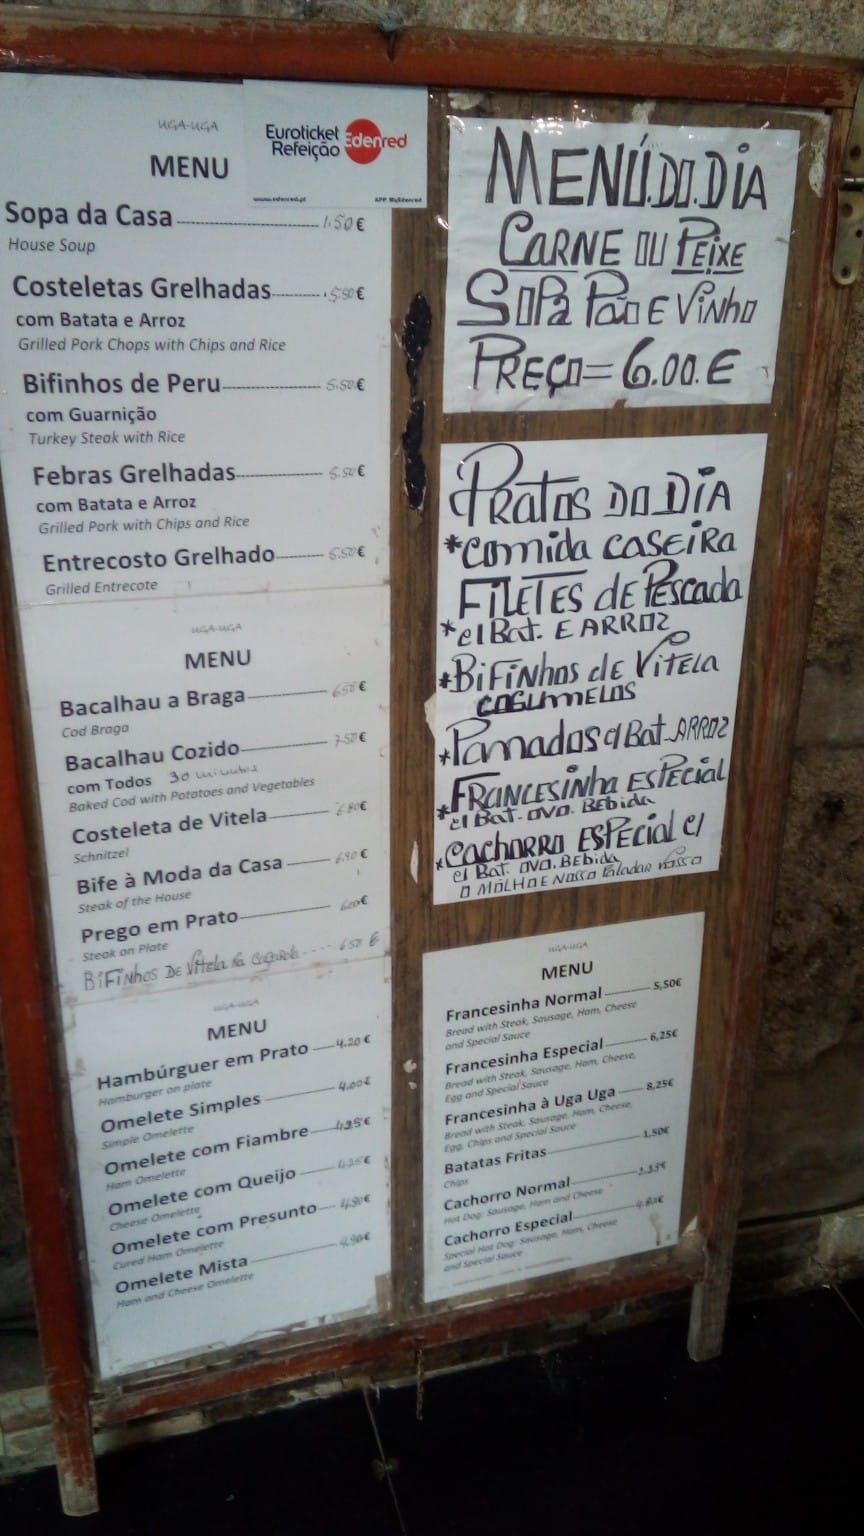 UGA-UGA
MENU
Euroticket
Refeição
Edenred
www.edenred.pt APP MyEdenred
Sopa da Casa 1.50€
House Soup
Costeletas Grelhadas 5.50€
com Batata e Arroz
Grilled Pork Chops with Chips and Rice
Bifinhos de Peru 5.50€
com Guarnição
Turkey Steak with Rice
Febras Grelhadas 5.50€
com Batata e Arroz
Grilled Pork with Chips and Rice
Entrecosto Grelhado 5.50€
Grilled Entrecote
UGA-UGA
MENU
Bacalhau a Braga 6.50€
Cod Braga
Bacalhau Cozido 7.50€
com Todos 30 minutos
Baked Cod with Potatoes and Vegetables
Costeleta de Vitela 6.80€
Schnitzel
Bife à Moda da Casa 6.90€
Steak of the House
Prego em Prato 6.00€
Steak on Plate
BiFiNhos DE Vitela Na 6.50 €
UGA-UGA
MENU
Hambúrguer em Prato 4.20€
Hamburger on plate
Omelete Simples 4.00€
Simple Omelette
Omelete com Fiambre €
Ham Omelette
Omelete com Queijo 4.25€
Cheese Omelette
Omelete com Presunto 4.90€
Cured Ham Omelette
Omelete Mista 4.90€
Ham and Cheese Omelette
MENÚ.DO.DiA
CARNE OU PEiXE
SOPA PÃO E ViNhO
PREÇO=6.00.€
PRatos DO DiA
*comida CASEiRA
FiLETES de PEscada
*c/ Bat. E ARROZ
*BiFiNhos de VitELA
COGUMELOS
*Panados c/ Bat. ARROZ
*FRANCESiNha ESPECiAL
c/ Bat. OVO. BEBida
*CAChORRO ESPECiAL c/
c/ Bat. OVO. BEBida
O MOLHO E NOSSO PALADAR VOSSO
UGA-UGA
MENU
Francesinha Normal 5,50€
Bread with Steak, Sausage, Ham, Cheese
and Special Sauce
Francesinha Especial 6,25€
Bread with Steak, Sausage, Ham, Cheese,
Egg and Special Sauce
Francesinha à Uga Uga 8,25€
Bread with Steak, Sausage, Ham, Cheese,
Egg, Chips and Special Sauce
Batatas Fritas 1,50€
Chips
Cachorro Normal €
Hot Dog: Sausage, Ham and Cheese
Cachorro Especial 4.80€
Special Hot Dog: Sausage, Ham, Cheese
and Special Sauce